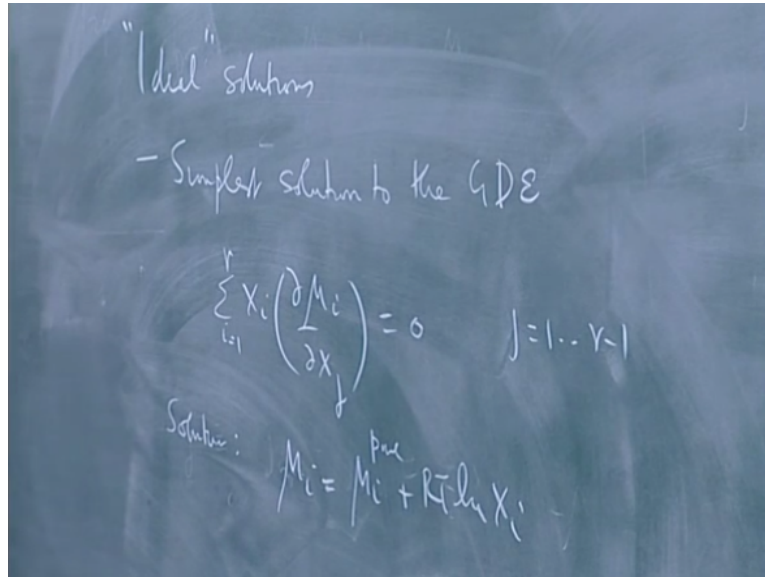 "Ideal" solutions
- Simplest solution to the GDE
∑_{i=1}^{r} x_i (∂μ_i/∂x_j) = 0   j=1.. r-1
Solution:
μ_i = μ_i^{pure} + RT ln x_i